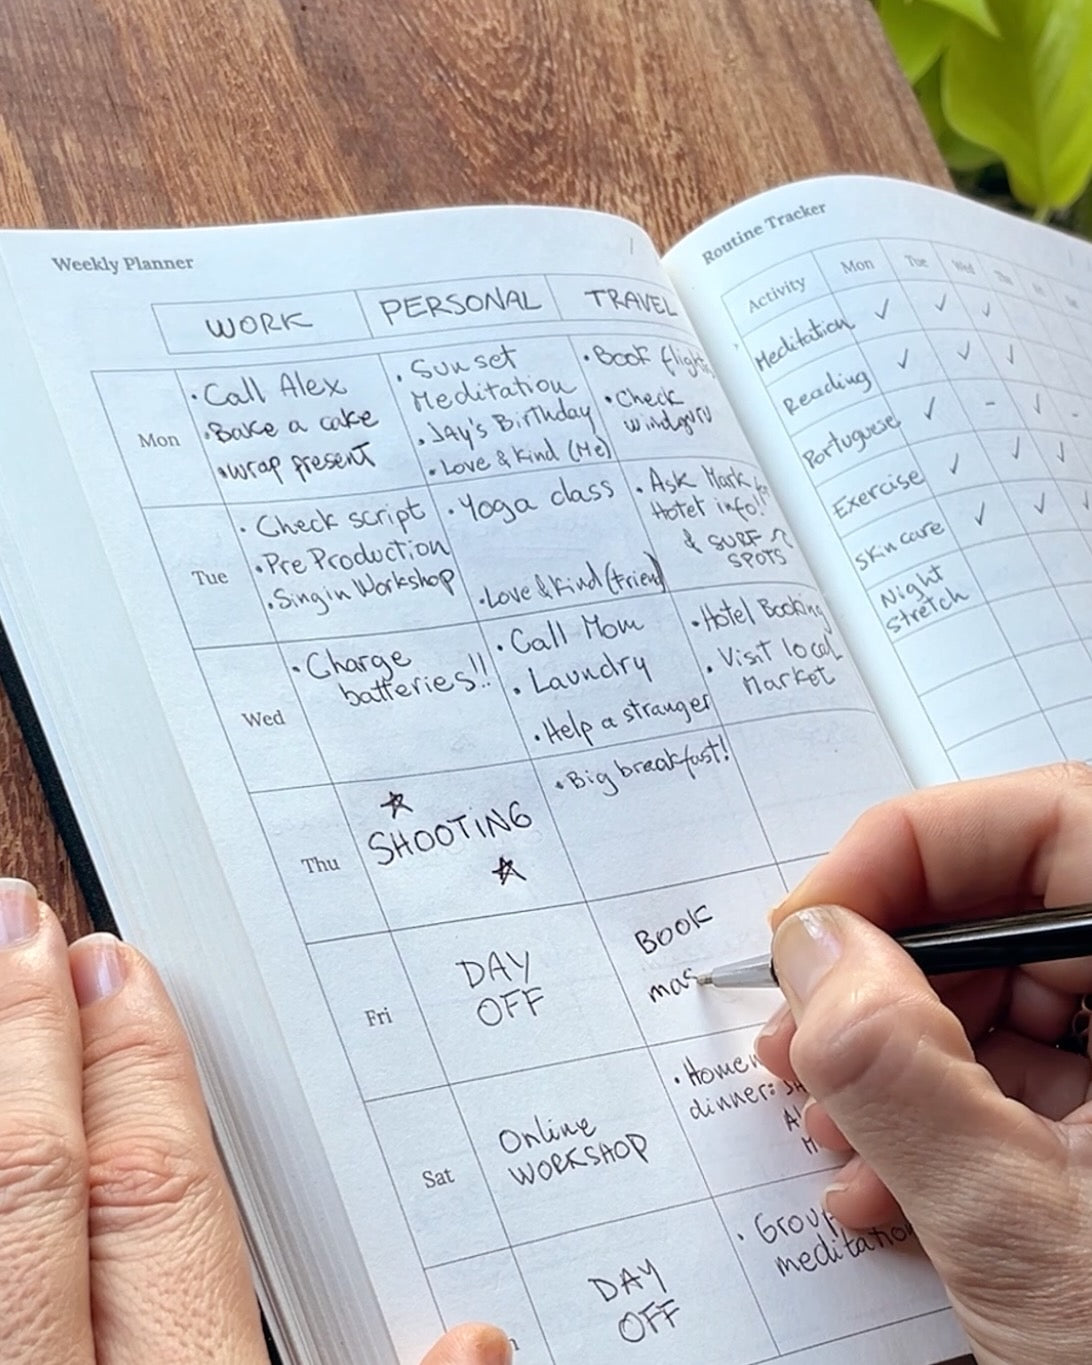 Weekly Planner
WORK
PERSONAL
TRAVEL
Mon
• Call Alex
• Bake a cake
• wrap present
• Sunset
Meditation
• JAY's Birthday
• Love & Kind (Me)
• Book
• Check
windguru
Tue
• Check script
• Pre Production
• Singin Workshop
• Yoga class
• Love & Kind (Friend)
• Ask Mark for
Hotel info!
& SURF
SPOTS
Wed
• Charge
batteries!!
• Call Mom
• Laundry
• Help a stranger
• Hotel Booking
• Visit local
Market
Thu
SHOOTING
• Big breakfast!
Fri
DAY
OFF
BOOK
mas
Sat
Online
WORKSHOP
dinner:
DAY
OFF
• Group
meditation
Routine Tracker
Activity
Mon
Tue
Wed
Thu
Meditation ✓ ✓ ✓
Reading ✓ ✓ ✓
Portuguese ✓ - ✓ -
Exercise ✓ ✓ ✓
Skin care ✓ ✓ ✓
Night
Stretch